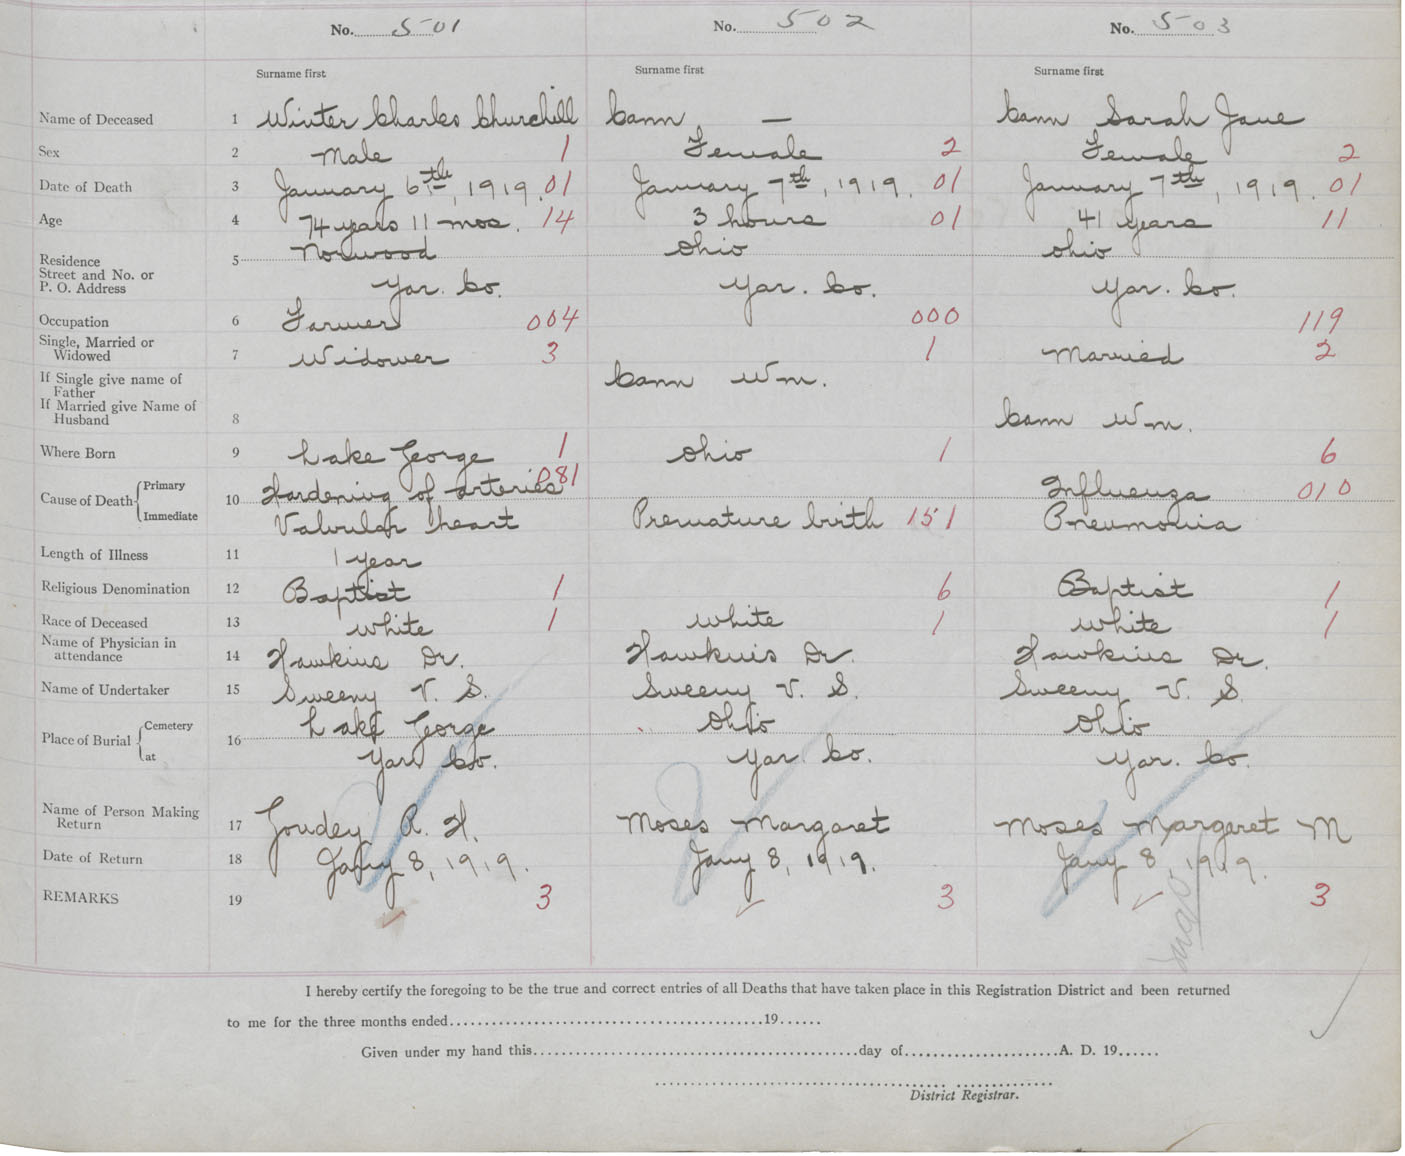 No. 501 No. 502 No. 503
Surname first Surname first Surname first
Name of Deceased 1 Winter Charles Churchill Cann — Cann Sarah Jane
Sex 2 Male 1 Female 2 Female 2
Date of Death 3 January 6th, 1919. 01 January 7th, 1919. 01 January 7th, 1919. 01
Age 4 74 years 11 mos. 14 3 hours 01 41 years 11
Residence 5 Norwood Ohio Ohio
Street and No. or
P. O. Address Yar. Co. Yar. Co. Yar. Co.
Occupation 6 Farmer 004 000 119
Single, Married or
Widowed 7 Widower 3 1 Married 2
If Single give name of
Father Cann Wm.
If Married give Name of
Husband 8 Cann Wm.
Where Born 9 Lake George 1 Ohio 1 6
Cause of Death Primary 10 Hardening of arteries 081 Influenza 010
Immediate Valvular heart Premature birth 151 Pneumonia
Length of Illness 11 1 year
Religious Denomination 12 Baptist 1 6 Baptist 1
Race of Deceased 13 White 1 White 1 White 1
Name of Physician in
attendance 14 Hawkins Dr. Hawkins Dr. Hawkins Dr.
Name of Undertaker 15 Sweeny V. S. Sweeny V. S. Sweeny V. S.
Place of Burial Cemetery 16 Lake George Ohio Ohio
at Yar. Co. Yar. Co. Yar. Co.
Name of Person Making
Return 17 Goudey R. H. Moses Margaret Moses Margeret M
Date of Return 18 Jany 8, 1919. Jany 8, 1919. Jany 8, 1919.
REMARKS 19 3 3 3
I hereby certify the foregoing to be the true and correct entries of all Deaths that have taken place in this Registration District and been returned
to me for the three months ended 19
Given under my hand this day of A. D. 19
District Registrar.